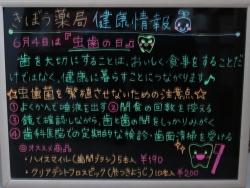 きぼう薬局 健康情報
6月4日は『虫歯の日』
歯を大切にすることは、おいしく食事をすることだ
けではなく、健康に暮らすことにつながります♪
☆虫歯菌を繁殖させないための注意点☆
①よくかんで唾液を出す ②間食の回数を控える
③鏡で確認しながら、歯と歯の間をしっかりみがく
④歯科医院での定期的な検診・歯面清掃を受ける
◎オススメ商品
・ハイスマイル(歯間ブラシ) 5本入 ¥190
・クリアデントフロスピック(糸つきようじ) 10本入 ¥200